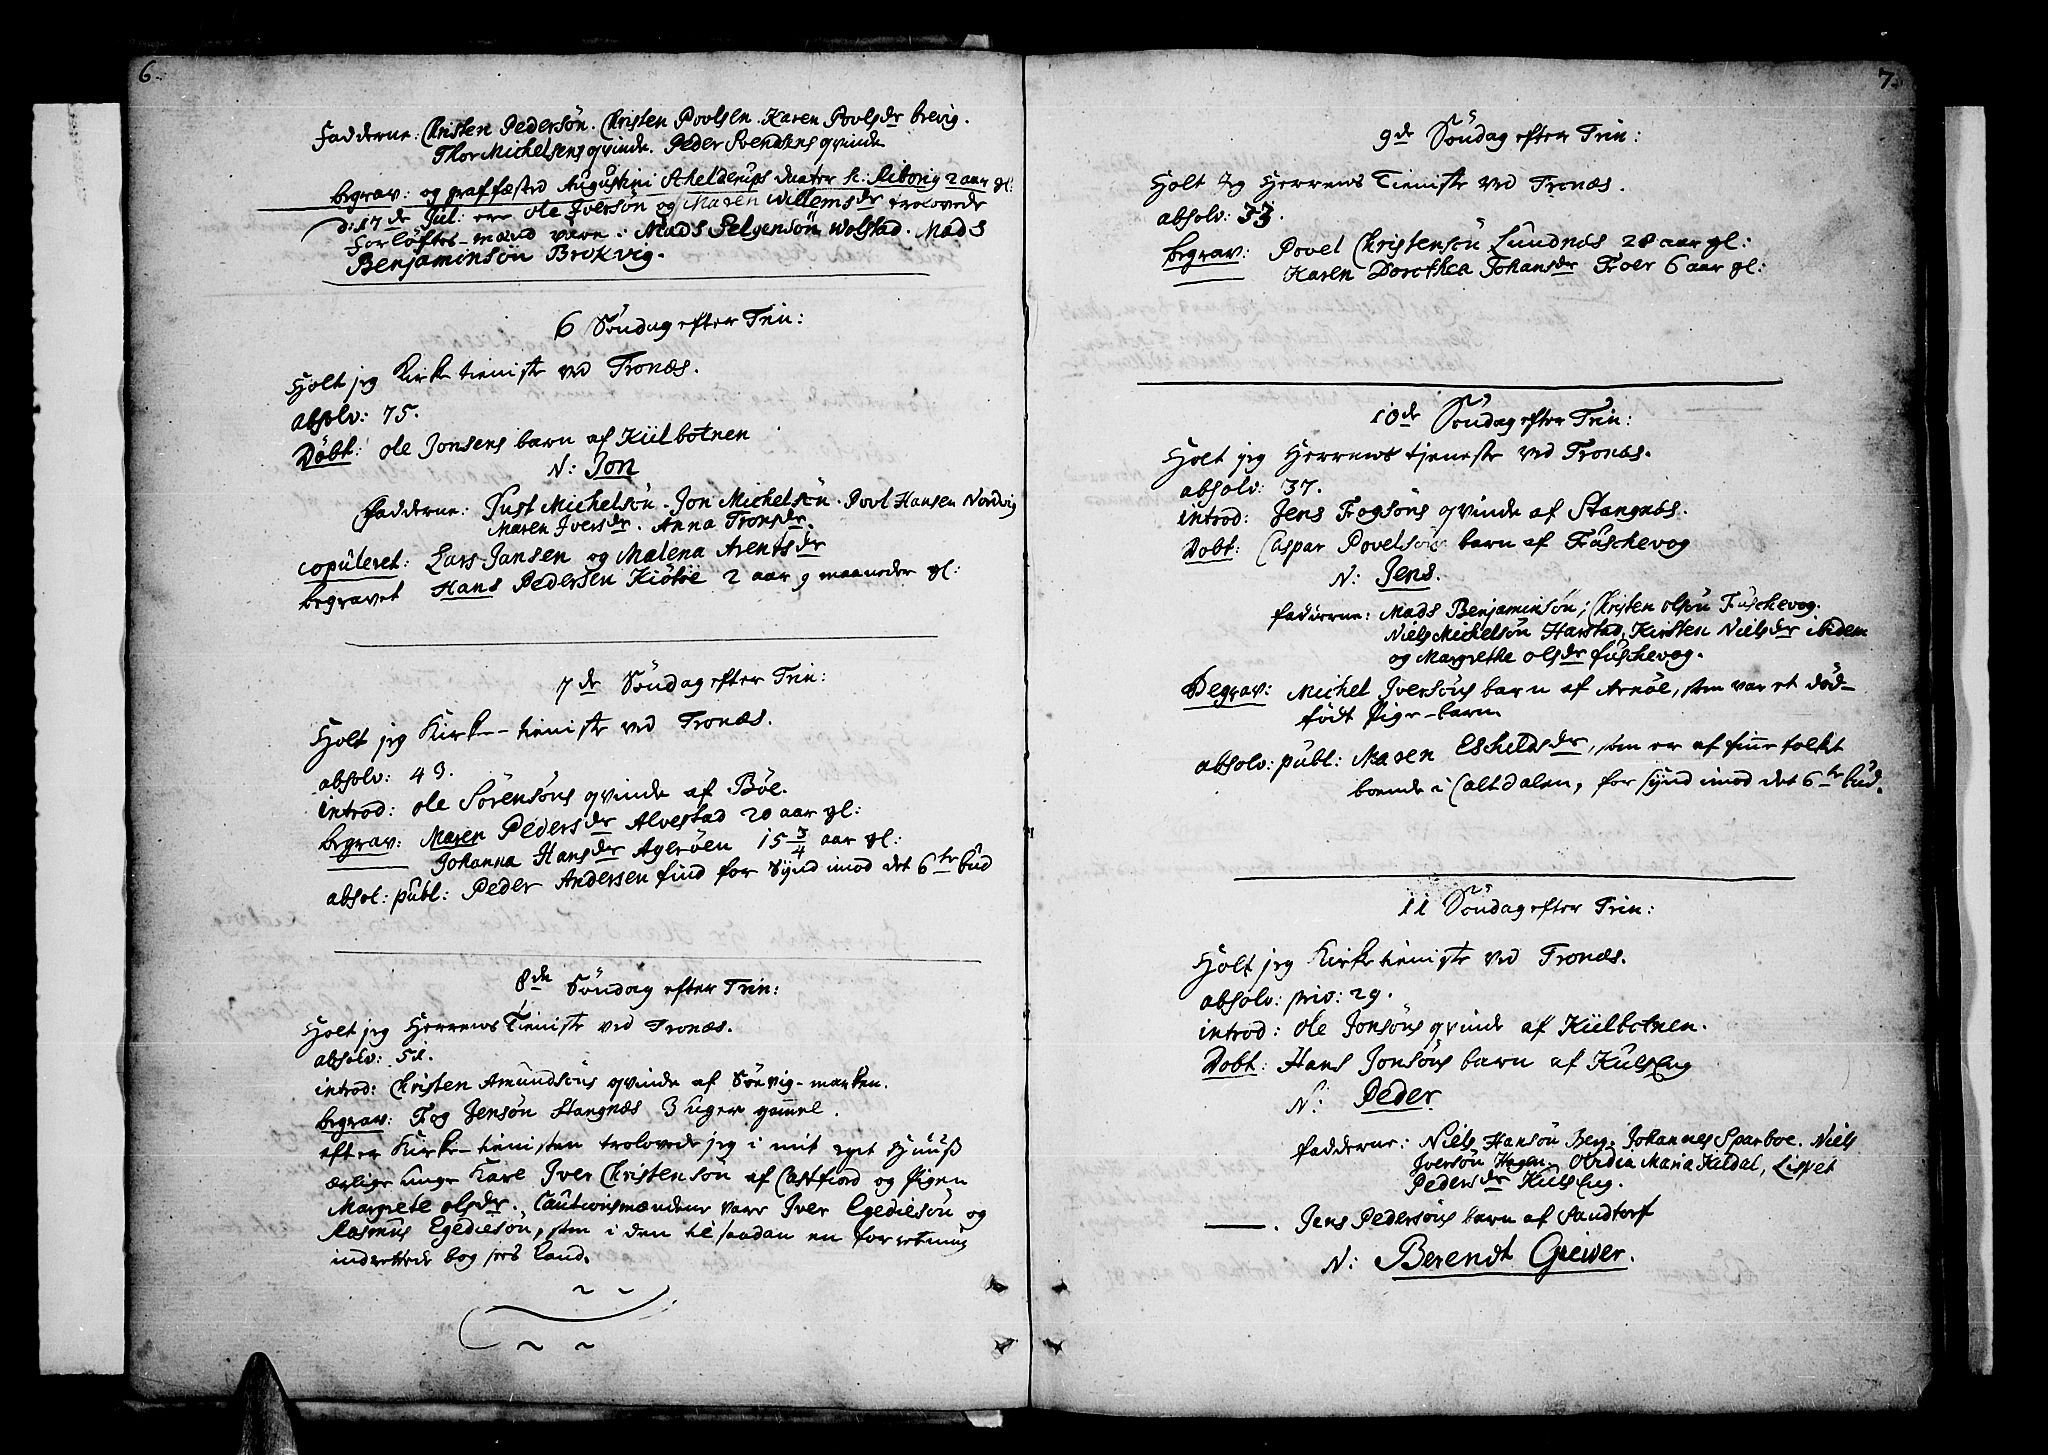 6.
Fadderne: Christen Pedersön. Christen Povlsen. Karen Povlsdr brevig.
Thor Michelsens qvinde. Peder Svendsens qvinde
begrav: og graffæsted Augustini Ahelderups daater h: Riborg 2 aar gl:
d: 17de Jul: ere Ole Jversön og Maren Willemsdr trolovede
Forlöftes-mænd vare: Mads Helgensön Wolstad. Mads
Benjaminsön Brokvig.
6 Söndag efter Trin:
Holt jeg Kirke tieniste ved Tronæs.
absolv: 75.
Döbt: Ole Jonsens barn af Kiilbotnen
N: Jon
Fadderne: Just Michelsön. Jon Michelsön. Povl Hansen Nordvig
Maren Jversdr. Anna Tronsdr.
copuleret: Lars Jansen og Malena Arentsdr
begravet Hans Pedersen Kiötöe 2 aar 9 maaneder gl:
7de Söndag efter Trin:
Holt jeg Kirke-tieniste ved Tronæs.
absolv: 43.
introd: Ole Sörensöns qvinde af Böe.
begrav: Maren Pedersdr Alvestad 20 aar gl:
Johanna Hansdr Ageröen 15 3/4 aar gl:
absol: publ: Peder Andersen find for Synd imod det 6te bud
8de Söndag efter Trin:
Holt jeg Herrens Tieniste ved Tronæs.
absolv: 51.
introd: Christen Amundsöns qvinde af Sörvig-marken.
begrav: Fog Jensön Stangnæs 3 uger gammel.
efter Kirke-tienisten trolovede jeg i mit eget Huuß
ærlige unge Karl Jver Christensön af Castfiord og Pigen
Margrete Olsdr. Cautionsmændene vare Jver Egediesön og
Rasmus Egediesön, som i den til saadan en forretning
indrettede bog sees kand.
7.
9de Söndag efter Trin:
Holt Jeg Herrens Tieniste ved Tronæs.
absolv: 33.
begrav: Povel Christensön Lundnæs 28 aar gl:
Karen Dorothea Johansdr Froer 6 aar gl:
10de Söndag efter Trin:
Holt jeg Herrens tjeneste ved Tronæs.
absolv: 37.
introd: Jens Fogsöns qvinde af Stangnæs.
Döbt: Caspar Povelsöns barn af Fuschevog
N: Jens.
fadderne: Mads Benjaminsön; Christen olsön Fuschevog.
Niels Michelsön Harstad, Kirsten Nielsdr ibidem
og Margrethe olsdr fuschevog.
Begrav: Michel Jversöns barn af Arnöe, som var et död-
födt Pige-barn.
absolv: publ: Maren Eschildsdr, som er af finne folket
boende i Caltdalen, for synd imod det 6te bud.
11 Söndag efter Trin:
Holt jeg Kirke tieniste ved Tronæs.
absolv: priv: 29.
introd: Ole Jonsöns qvinde af Kiilbotnen.
Döbt: Hans Jonsöns barn af Kulseng
N: Peder
fadderne: Niels Hansön Berg. Johannes Sparboe. Niels
Jversön Hagen. Ovidia Maria Kildal, Lisbet
Pedersdr Kulseng.
——. Jens Pedersöns barn af Sandtorf
N: Berendt Greiver.